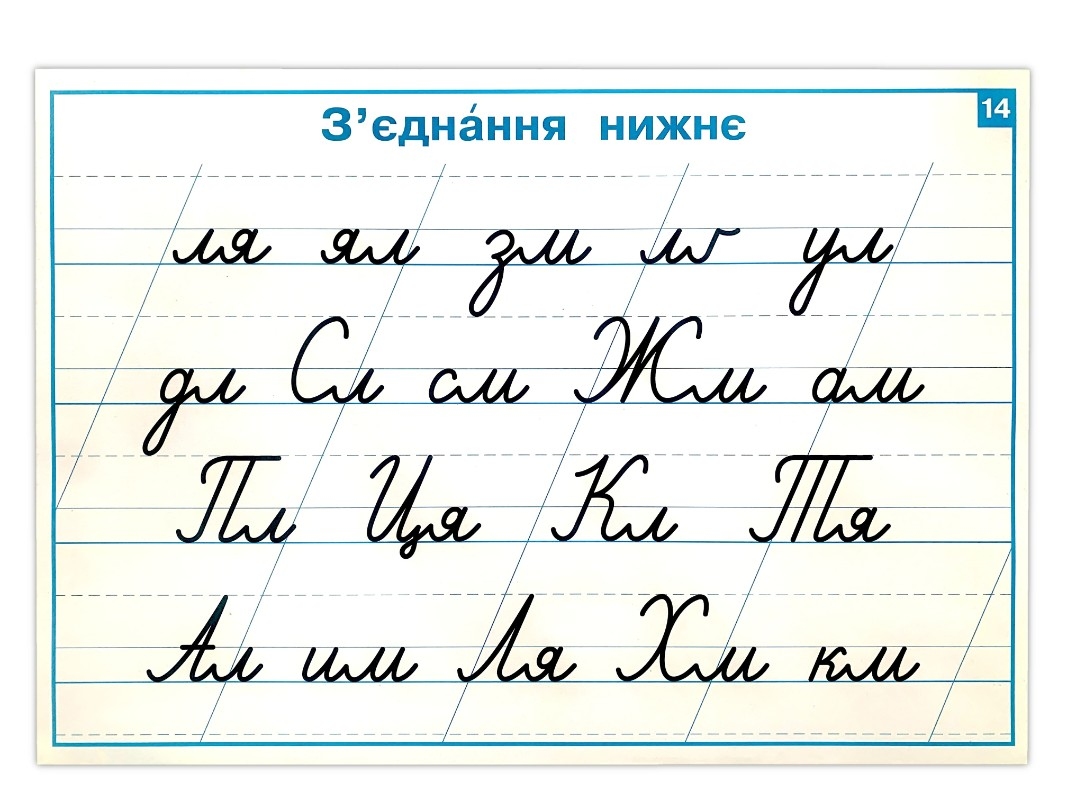 З’єдна́ння нижнє
14
ля ял зм ул
дл Сл см Жм ам
Пл Ця Кл Тя
Ал им Ля Хм км